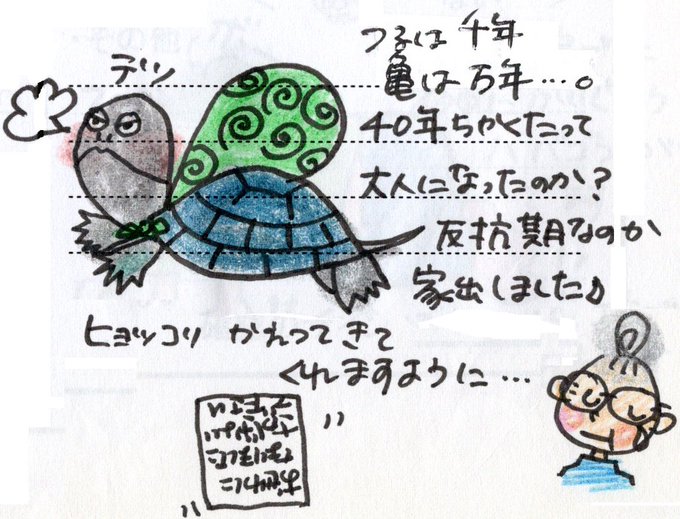 テツ
つるは 千年
亀は 万年…。
40年ちかくたって
大人になったのか？
反抗期なのか
家出しました♪
ヒョッコリ かえってきて
くれますように…